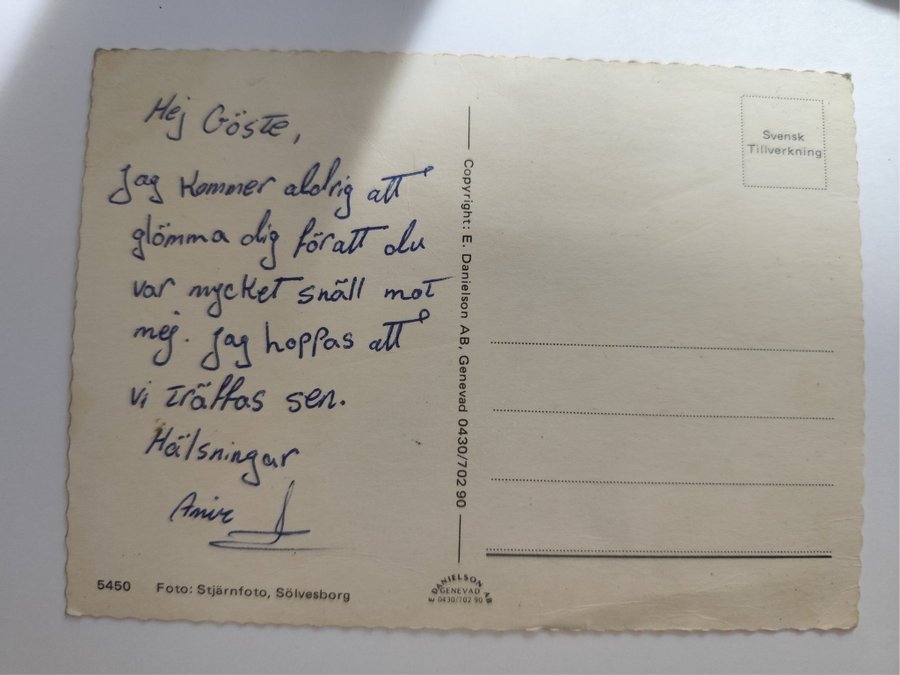 Hej Göste,
Jag kommer aldrig att
glömma dig föratt du
var mycket snäll mot
mej. Jag hoppas att
vi träffas sen.
Hälsningar
Amir
5450 Foto: Stjärnfoto, Sölvesborg
Copyright: E. Danielson AB, Genevad 0430/702 90
E DANIELSON AB
GENEVAD
0430/702 90
Svensk
Tillverkning